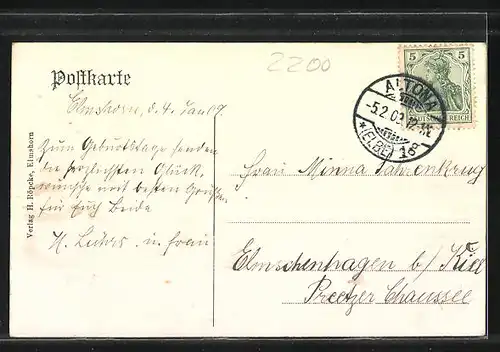 2200
Postkarte
Elmshorn, d. 4.
Zum Geburtstage senden
die herzlichsten Glück-
wünsche mit besten Grüßen
für Euch Beide
H. Lührs u. Frau
Verlag H. Röpcke, Elmshorn
5 5
DEUTSCHES REICH
ALTONA
-5.2.09.12-1N.
*(ELBE) 1g
Frau Minna Fahrenkrug
Elmschenhagen b/ Kiel
Preetzer Chaussee